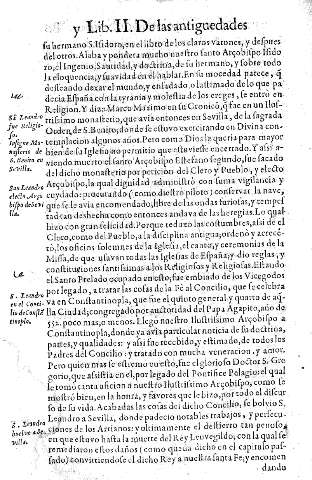 y Lib. II. De las antiguedades
su hermano S. Isidoro, en el libro de los claros varones, y despues
del otros. Alaba y pondera mucho nuestro santo Arçobispo Isido
ro, el Ingenio, Santidad, y dotrina, de su hermano, y sobre todo
la eloquencia, y suavidad en el hablar. En su mocedad parece, q̃
desseando dexar el mundo, y enfadado, o lastimado de lo que pa
decia España con la tyrania y molestia de los ereges, se entró en
Religion. Y dize Marco Maximo en su Cronicõ, q̃ fue en un Ilus-
trissimo monasterio, que avia entonces en Sevilla, de la sagrada
Orden, de S. Benito, donde se estuvo exercitando en Divina con-
templacion algunos años. Pero como Dios le queria para mayor
bien de su Iglesia, no permitio que estuviesse encerrado. Y assi a-
viendo muerto el santo Arçobispo Estefano segundo, fue sacado
del dicho monasterio por peticion del Clero y Pueblo, y electo
Arçobispo, la qual dignidad administró con suma vigilancia y
cuydado: procurando (como diestro piloto) conservar la nave,
que se le avia encomendado, libre de las ondas furiosas, y tempes
tad tan deshecha como entonces andava de las heregias. Lo qual
hizo con gran felicidad. Porque redrezó las costumbres, assi de el
Clero, como del Pueblo, a la disciplina antigua; ordenó y acrecē-
tó, los oficios solemnes de la Iglesia, el canto, y ceremonias de la
Missa, de que usavan todas las Iglesias de España, y dio reglas, y
constituciones santissimas a los Religiosos y Religiosas. Estando
el Santo Prelado ocupado en esto, fue embiado de los Visogodos
por legado, a tratar las cosas de la Fé al Concilio, que se celebra
va en Constantinopla, que fue el quinto general y quarto de aq̃-
lla Ciudad; congregado por auctoridad del Papa Agapito, año de
552. poco mas, o menos. Llegó nuestro Ilustrissimo Arçobispo a
Constantinopla, donde ya avia particular noticia de su doctrina,
partes, y qualidades: y assi fue recebido, y estimado, de todos los
Padres del Concilio: y tratado con mucha veneracion, y amor.
Pero quien mas se estremó en esto, fue el glorioso Doctor S. Gre
gorio, que assistia en el, por legado del Pontifice Pelagio: el qual
le tomó tanta aficion a nuestro Ilustrissimo Arçobispo, como se
mostró bien, en la honra, y favores que le hizo, por todo el discur
so de su vida. Acabadas las cosas del dicho Concilio, se bolvio S.
Leandro a Sevilla, donde padecio notables trabajos, y persecu-
ciones de los Arrianos: y ultimamente el destierro tan penoso,
en que estuvo hasta la muerte del Rey Leuvegildo, con la qual se
remediaron estos daños (como queda dicho en el capitulo pas-
sado) convirtiendose el dicho Rey a nuestra santa Fe; y encomen
dandu
S. Leandro
fue Religio-
so.
Insigne Mo-
nasterio de
S. Benito en
Sevilla.
San Leandro
electo Arço
bispo de Sevi
lla.
S. Leandro
en el Conci-
lio de Consta
tinopla.
S. Leandro
buelve a Se-
villa.